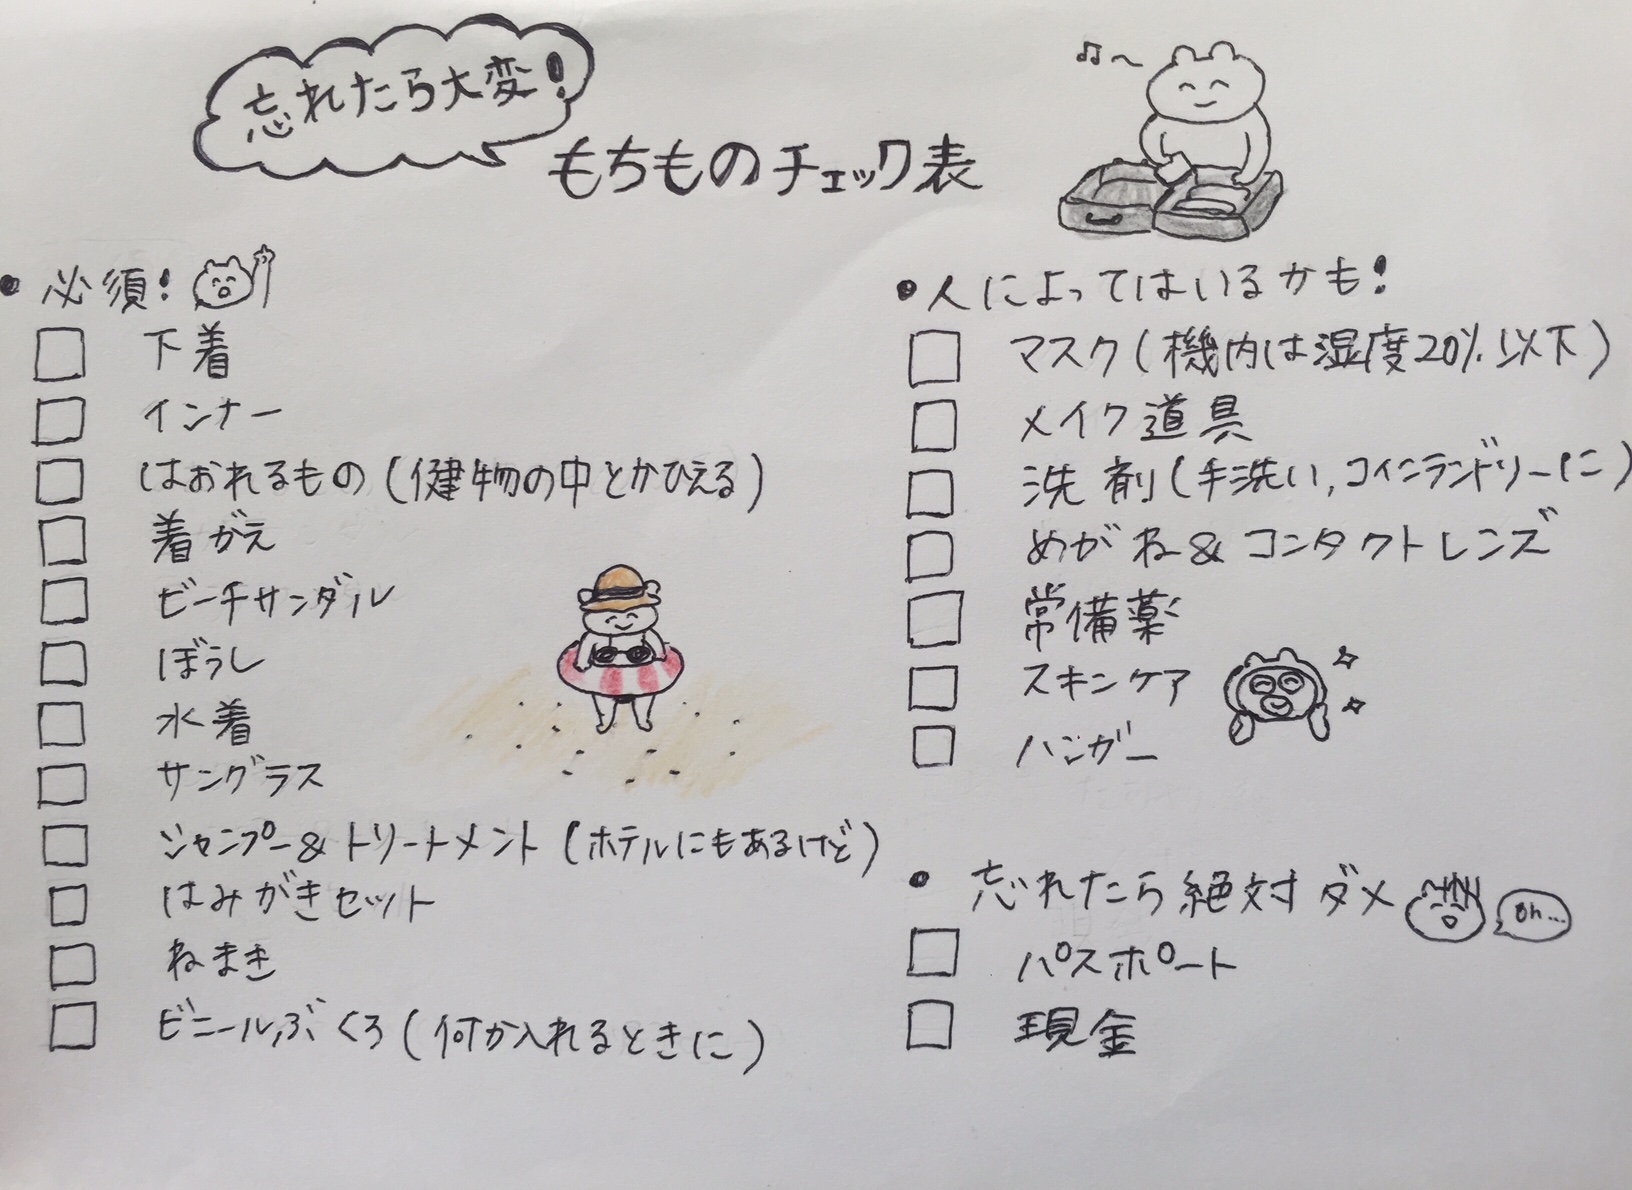 忘れたら大変!
もちものチェック表
♫〜
• 必須!
□ 下着
□ インナー
□ はおれるもの(健物の中とかひえる)
□ 着がえ
□ ビーチサンダル
□ ぼうし
□ 水着
□ サングラス
□ シャンプー&トリートメント(ホテルにもあるけど)
□ はみがきセット
□ ねまき
□ ビニールぶくろ(何か入れるときに)
• 人によってはいるかも!
□ マスク(機内は湿度20%以下)
□ メイク道具
□ 洗剤(手洗い,コインランドリーに)
□ めがね&コンタクトレンズ
□ 常備薬
□ スキンケア
□ ハンガー
• 忘れたら絶対ダメ
oh...
□ パスポート
□ 現金